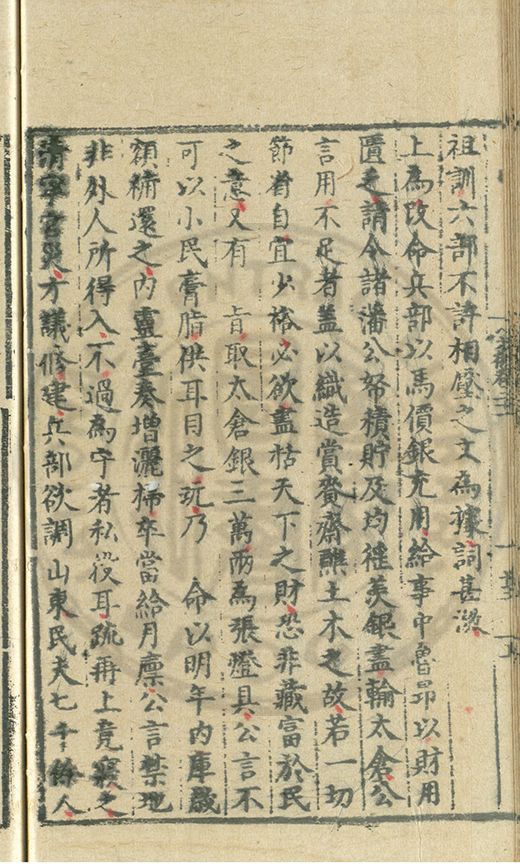 祖訓六部不許相壓之文為據詞甚激
上為改命兵部以馬價銀充用給事中魯昂以財用
匱乏請令諸藩公帑積貯及均徭羨銀盡輸太倉公
言用不足者蓋以織造賞賚齋醮土木之故若一切
節省自宜少裕必欲盡括天下之財恐非藏富於民
之意又有 旨取太倉銀三萬兩為張燈具公言不
可以小民膏脂供耳目之玩乃 命以明年內庫歲
額補還之內靈臺奏增灑掃卒當給月廩公言禁地
非外人所得入不過為守者私役耳疏再上竟寢之
清寧宮災方議修建兵部欲調山東民夫七千餘人